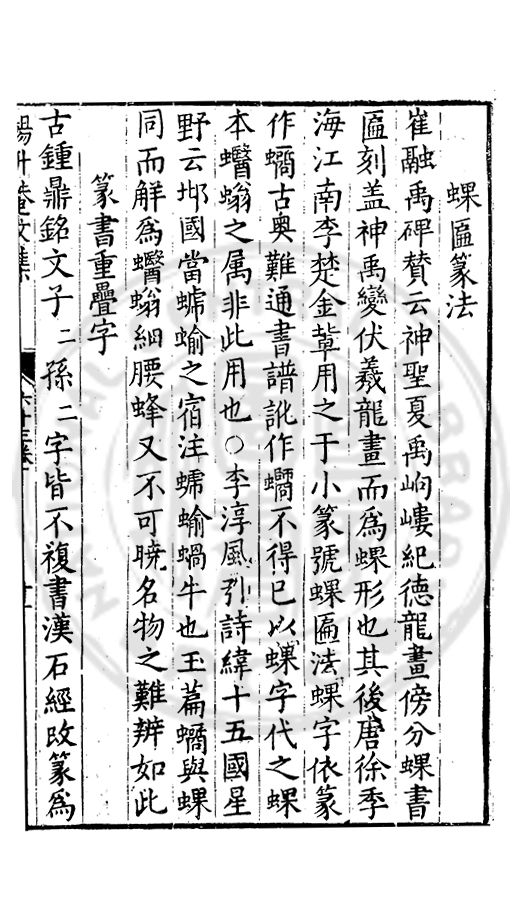 蜾匾篆法
崔融禹碑賛云神聖夏禹岣嶁紀德龍畫傍分蜾書
匾刻盖神禹變伏羲龍畫而爲蜾形也其後唐徐季
海江南李楚金軰用之于小篆號蜾匾法蜾字依篆
作蠣古奥難通書譜訛作蠣不得已以蜾字代之蜾
本蠮螉之属非此用也○李淳風引詩緯十五國星
野云邶國當蜾蝓之宿注蠕蝓蝸牛也玉篇蠣與蜾
同而觧爲蠮螉細腰蜂又不可曉名物之難辨如此
篆書重疊字
古鍾鼎銘文子二孫二字皆不複書漢石經改篆爲